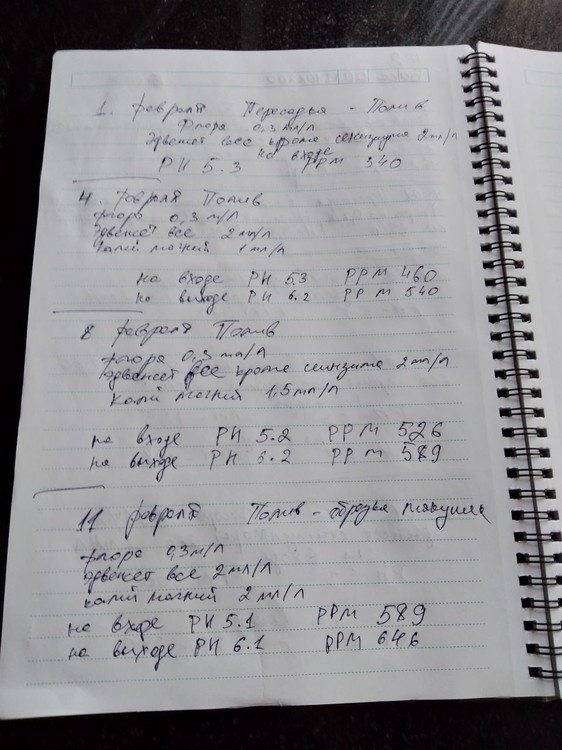 1. февраля Пересадка - Полив
Флора 0,3 мл/л
Эдвенсет все кроме сензицима 2 мл/л
на входе
PH 5.3 PPM 340
4 февраля Полив
флора 0,3 м/л
Эдвенсет все 2 мл/л
калий магний 1 мл/л
на входе PH 5.3 PPM 460
на выходе PH 6.2 PPM 540
8 февраля Полив
флора 0,3 мл/л
Эдвенсет все кроме сензима 2 мл/л
калий магний 1,5 мл/л
на входе PH 5.2 PPM 526
на выходе PH 6.2 PPM 589
11 февраля Полив - обрезка
флора 0,3 м/л
Эдвенсет все 2 мл/л
калий магний 2 мл/л
на входе PH 5.1 PPM 589
на выходе PH 6.1 PPM 646